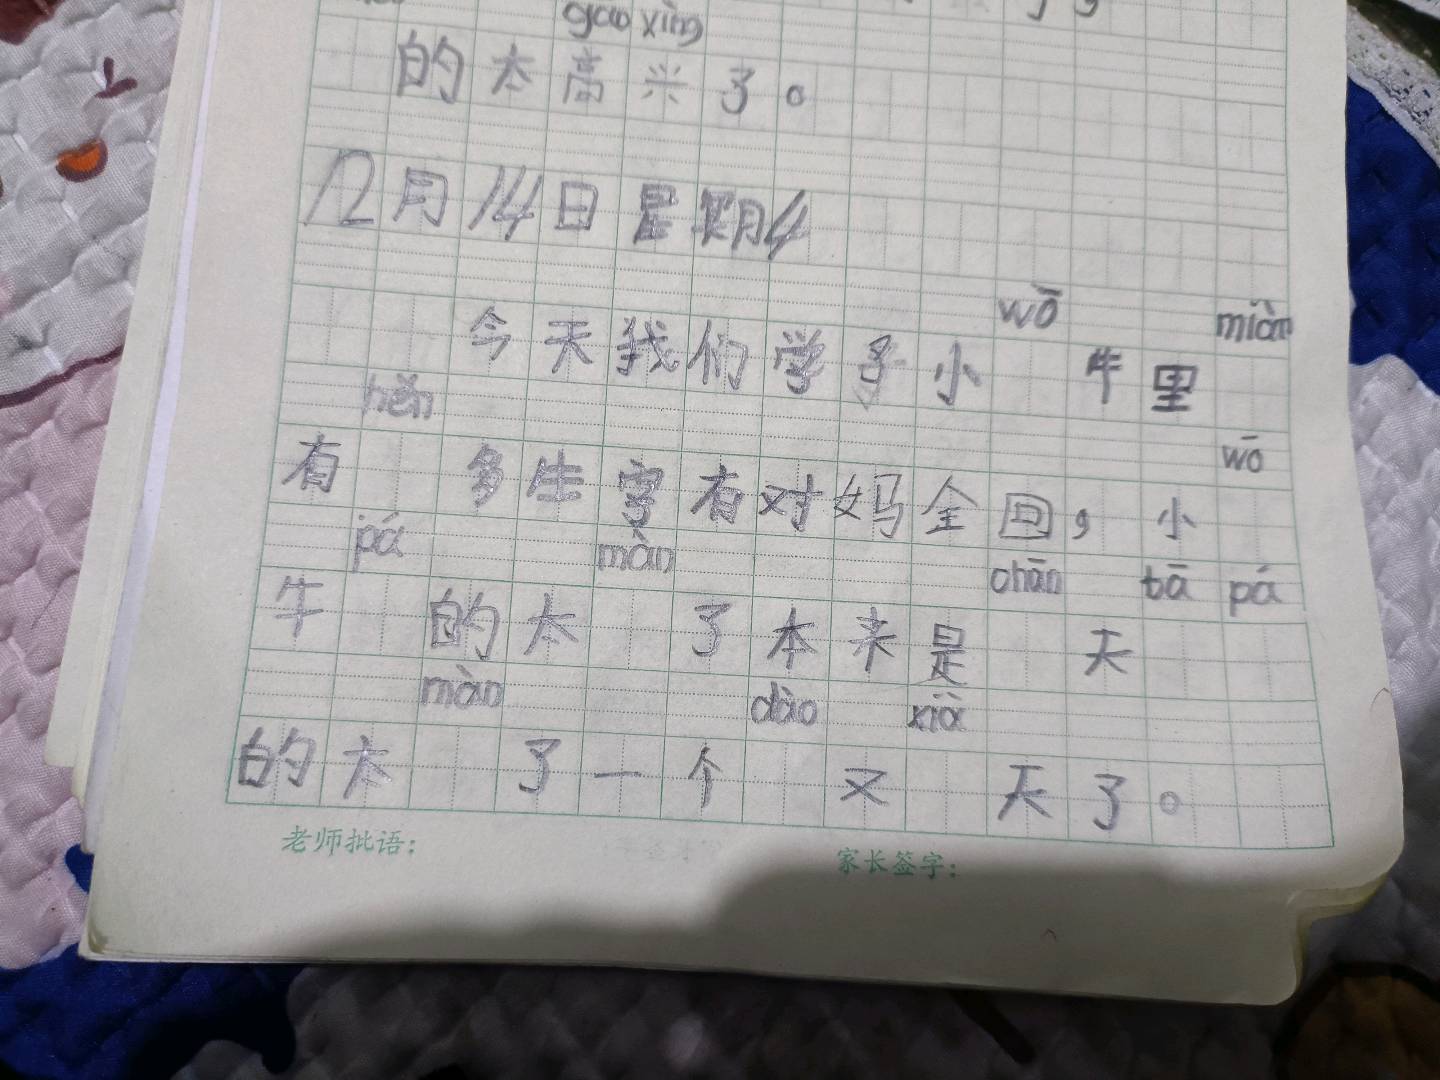 gāo xìng
的太高兴了。
12月14日星期4
wō miàn
今天我们学子小 牛里
hěn wō
有 多生字有对妈全回，小
pá màn chān bā pá
牛 的太 了本来是 天
màn dào xià
的太 了一个 又 天了。
老师批语： 家长签字：